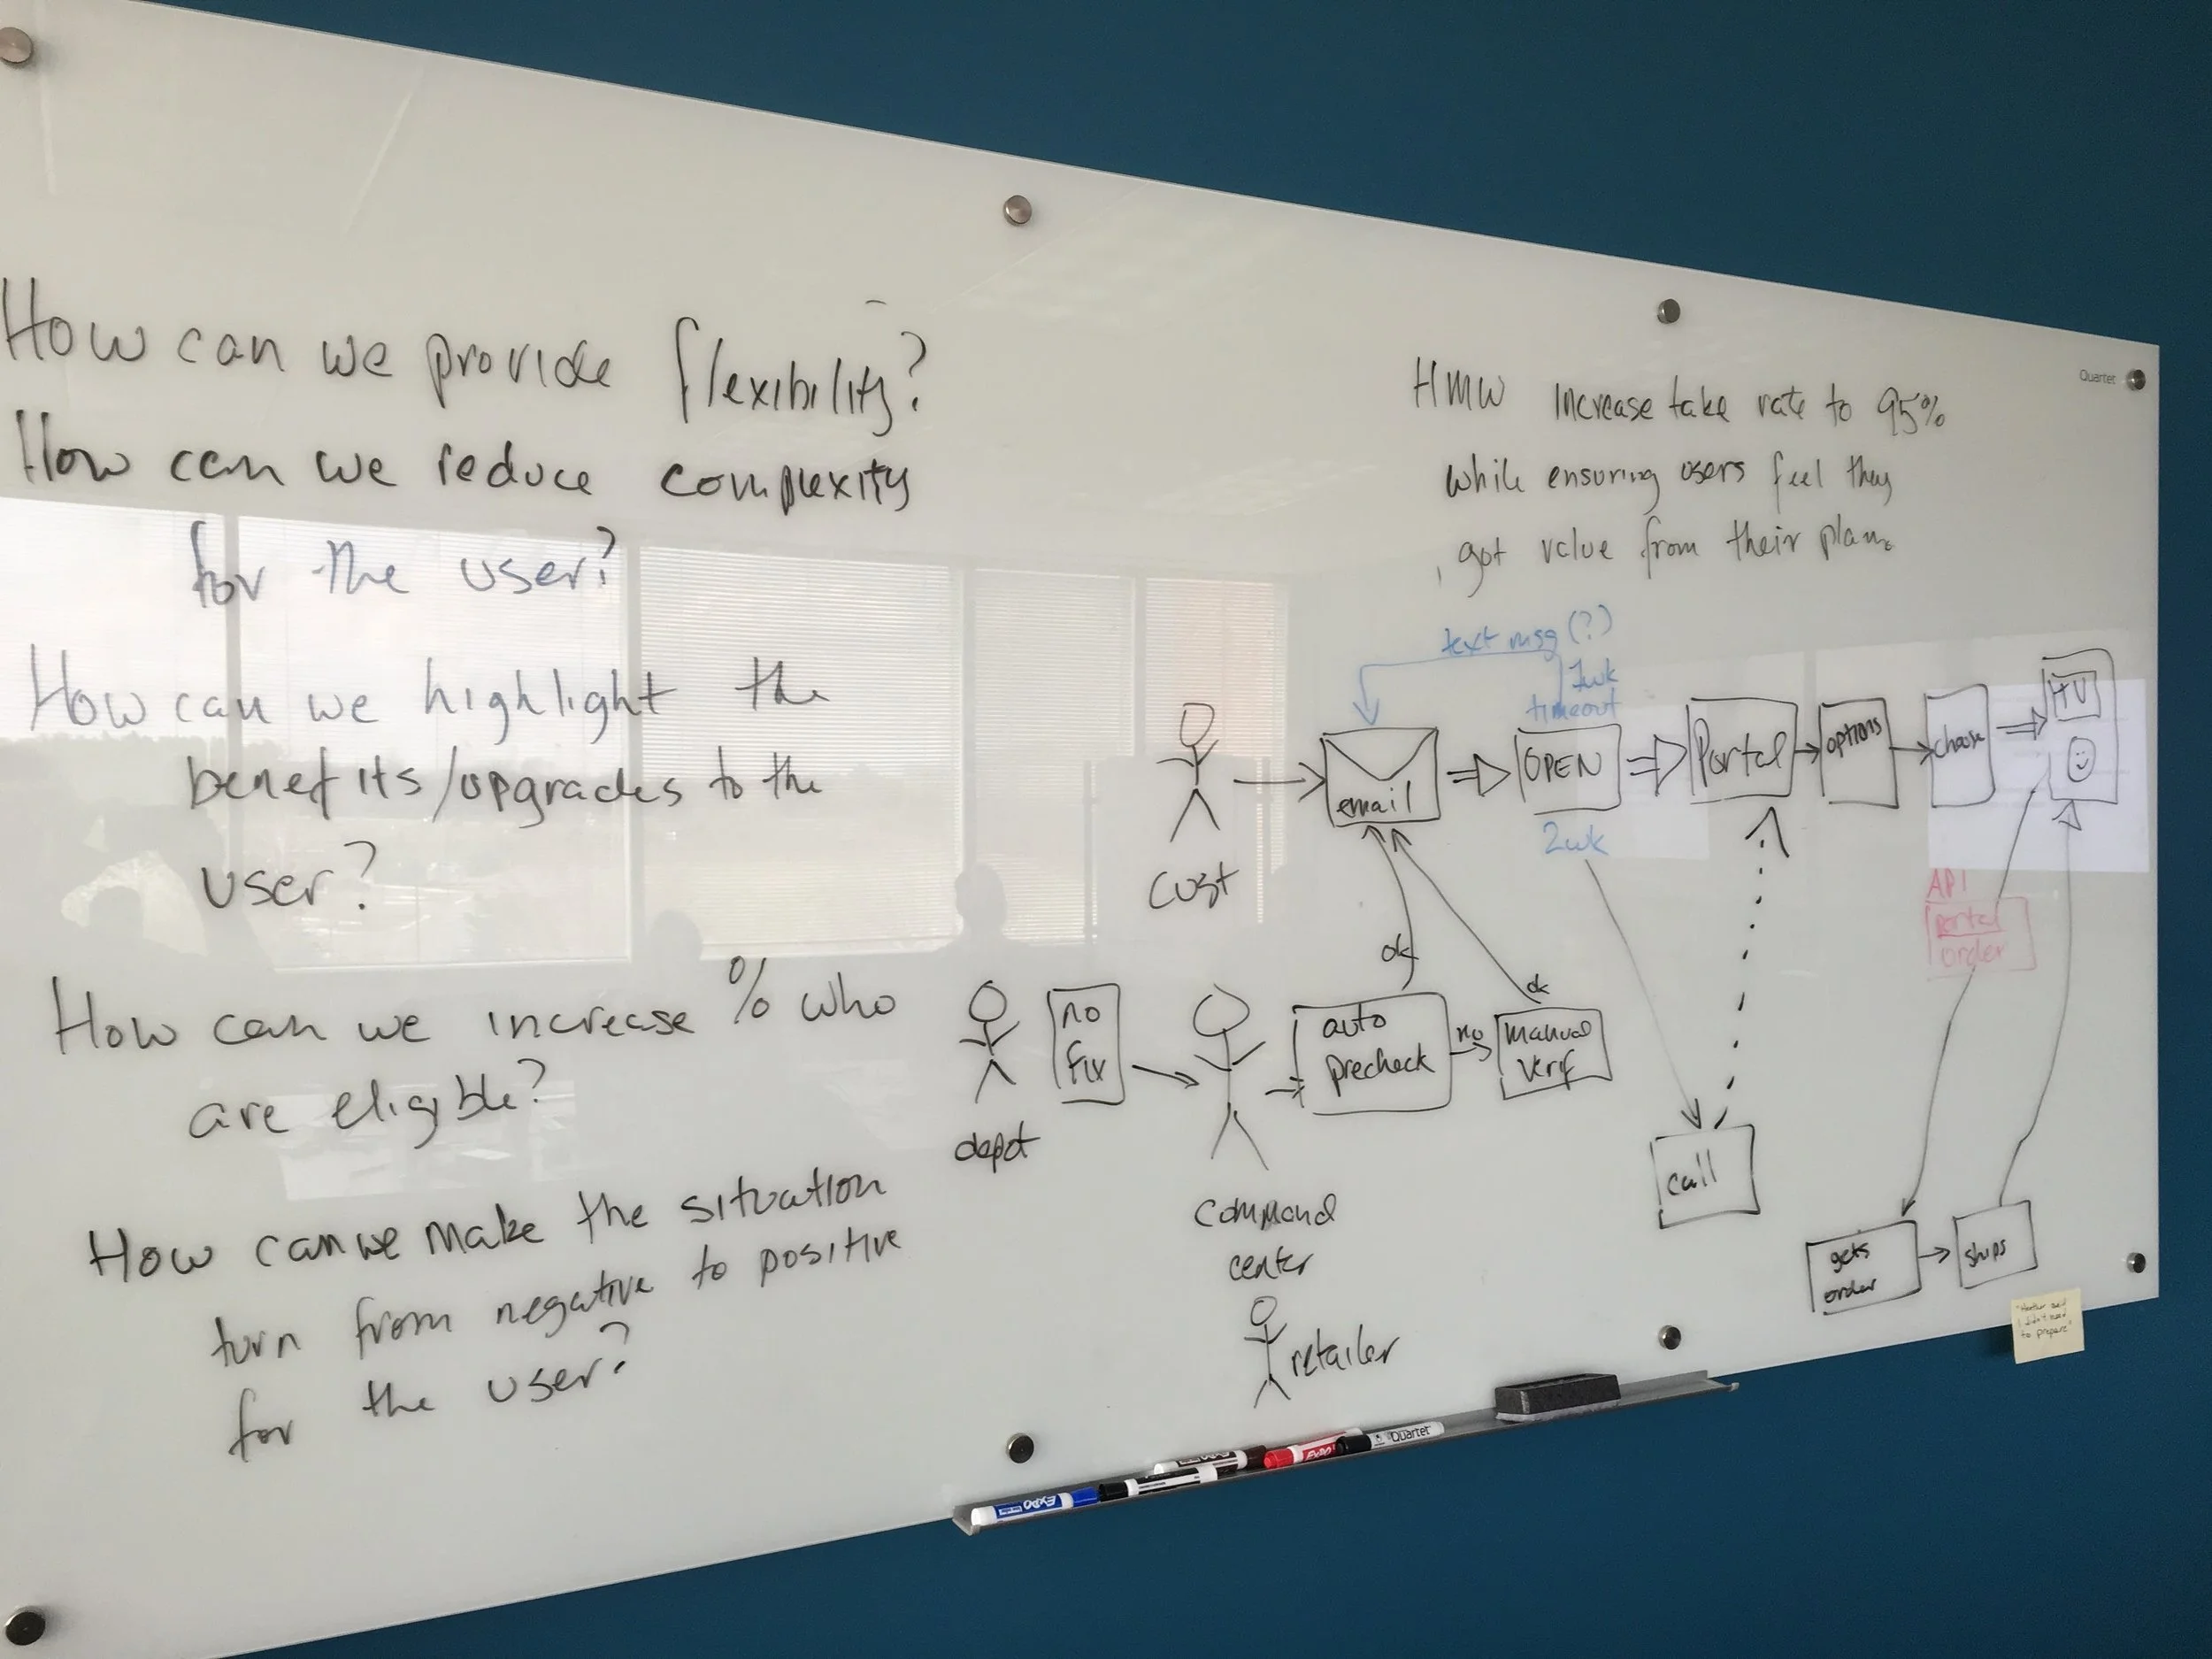 How can we provide flexibility?
How can we reduce complexity
for the user?
How can we highlight the
benefits/upgrades to the
user?
How can we increase % who
are eligible?
How can we make the situation
turn from negative to positive
for the user?
HMW increase take rate to 95%
while ensuring users feel they
got value from their plan.
Quartet
text msg (?)
1wk
timeout
cust
email
OPEN
2wk
Portal
options
choose
TV
API
portal
order
ok
ok
depot
no
fix
command
center
auto
precheck
no
manual
verif
call
gets
order
ships
retailer
"Heather said
I didn't need
to prepare"
EXPO
EXPO
Quartet